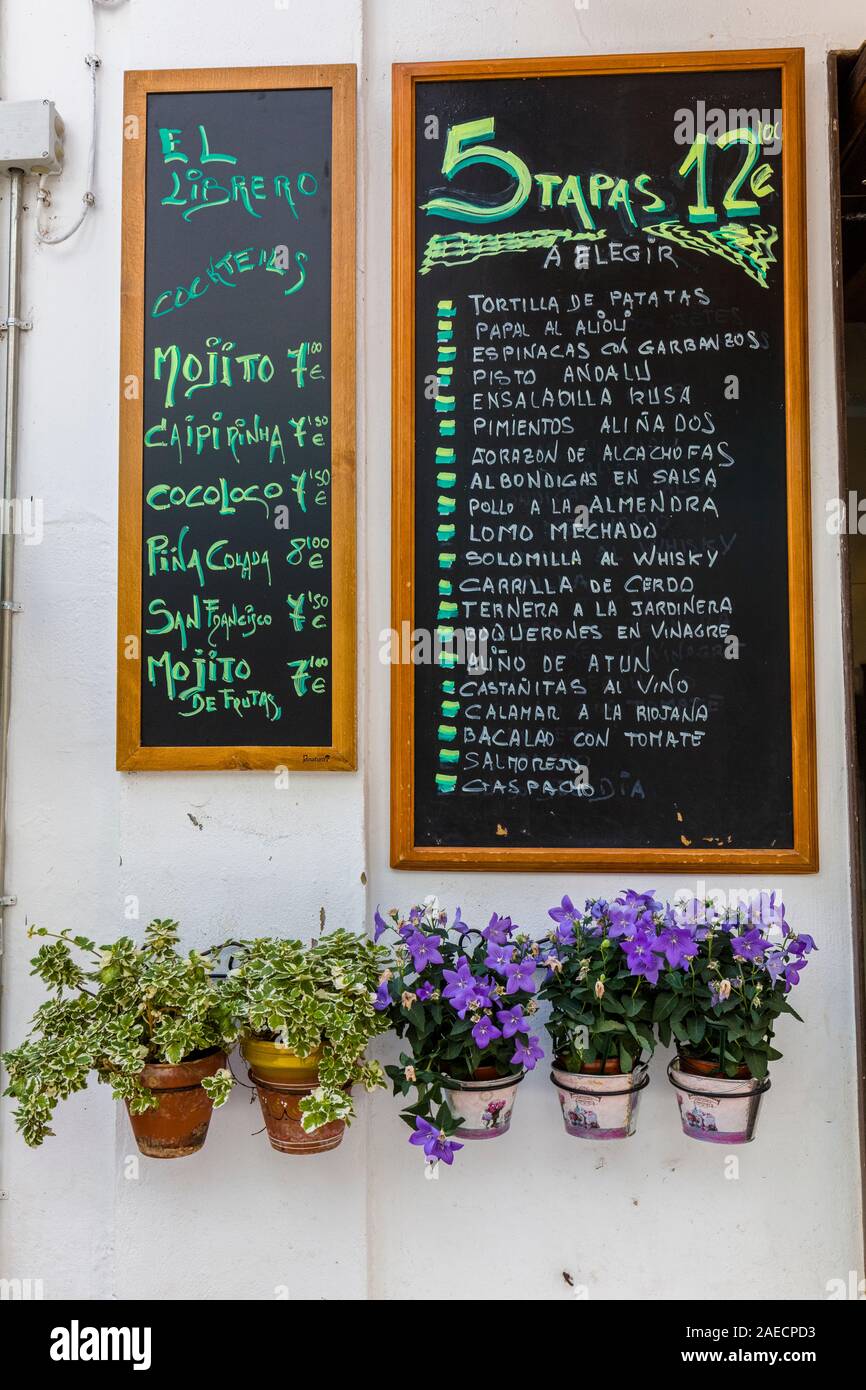 EL
LIBRERO
COCKTEILS
MOJITO 7'00 €
CAIPIRINHA 7'50 €
COCOLOCO 7'50 €
PIÑA COLADA 8'00 €
SAN FRANCISCO 7'50 €
MOJITO 7'00 €
DE FRUTAS
5 TAPAS 12'00 €
A ELEGIR
TORTILLA DE PATATAS
PAPAL AL ALIOLI
ESPINACAS CON GARBANZOS
PISTO ANDALU
ENSALADILLA RUSA
PIMIENTOS ALIÑADOS
CORAZON DE ALCACHOFAS
ALBONDIGAS EN SALSA
POLLO A LA ALMENDRA
LOMO MECHADO
SOLOMILLA AL WHISKY
CARRILLA DE CERDO
TERNERA A LA JARDINERA
BOQUERONES EN VINAGRE
ALIÑO DE ATUN
CASTAÑITAS AL VINO
CALAMAR A LA RIOJANA
BACALAO CON TOMATE
SALMOREJO
GASPACHO
alamy
Image ID: 2AECPD3
www.alamy.com